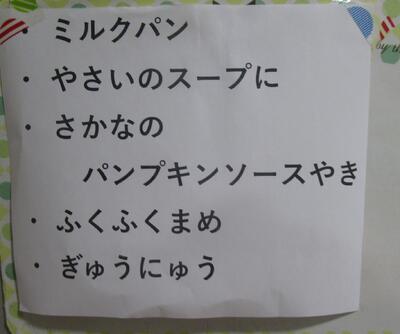 ・ミルクパン
・やさいのスープに
・さかなの
パンプキンソースやき
・ふくふくまめ
・ぎゅうにゅう
by